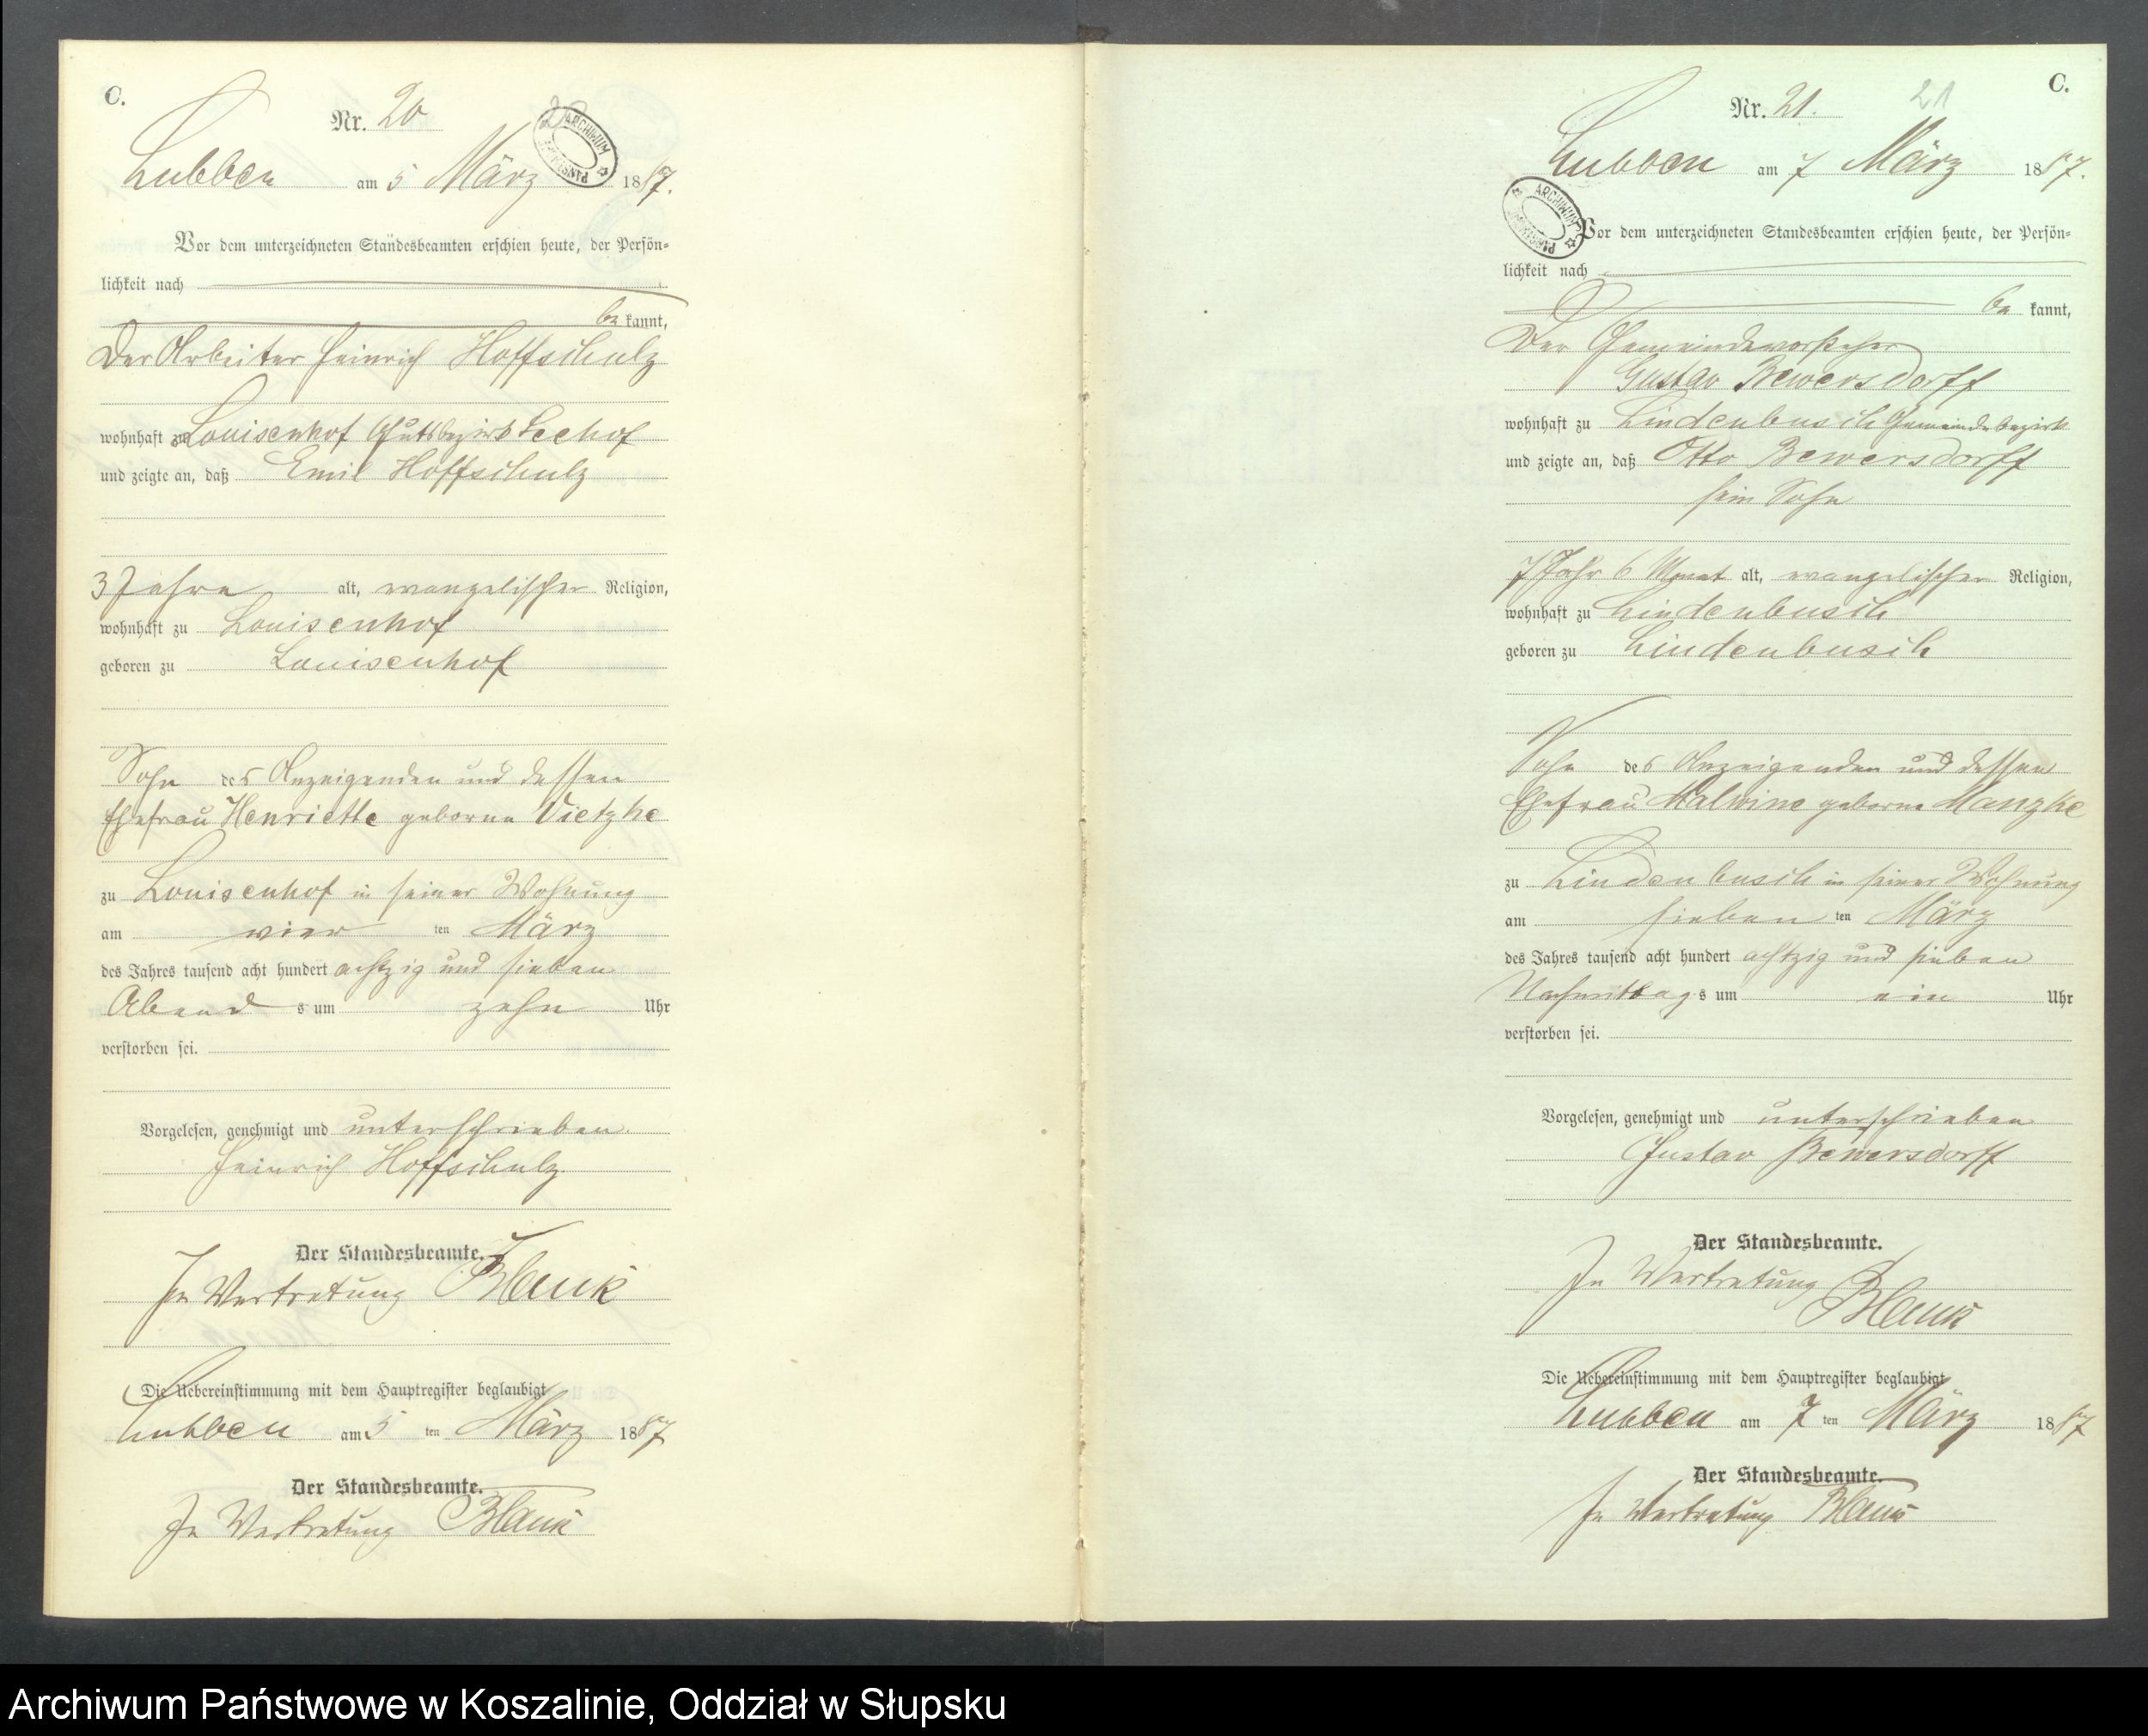 C.
Nr. 20
ARCHIWUM PAŃSTWOWE
Lubben am 5 März 1887.
Vor dem unterzeichneten Standesbeamten erschien heute, der Persön-
lichkeit nach
be kannt,
Der Arbeiter Heinrich Hoffschulz
wohnhaft zu Louisenhof Gutsbezirk Seehof
und zeigte an, daß Emil Hoffschulz
3 Jahre alt, evangelischer Religion,
wohnhaft zu Louisenhof
geboren zu Louisenhof
Sohn des Anzeigenden und dessen
Ehefrau Henriette geborne Vietzke
zu Louisenhof in seiner Wohnung
am vier ten März
des Jahres tausend acht hundert achtzig und sieben
Abend s um zehn Uhr
verstorben sei.
Vorgelesen, genehmigt und unterschrieben.
Heinrich Hoffschulz.
Der Standesbeamte.
In Vertretung Blank
Die Uebereinstimmung mit dem Hauptregister beglaubigt
Lubben am 5 ten März 1887
Der Standesbeamte.
In Vertretung Blank
C.
21
Nr. 21.
Lubben am 7 März 1887.
ARCHIWUM PAŃSTWOWE
Vor dem unterzeichneten Standesbeamten erschien heute, der Persön-
lichkeit nach
be kannt,
Der Gemeindevorsteher
Gustav Bewersdorff
wohnhaft zu Lindenbusch Gemeindebezirk
und zeigte an, daß Otto Bewersdorff
sein Sohn
7 Jahr 6 Monat alt, evangelischer Religion,
wohnhaft zu Lindenbusch
geboren zu Lindenbusch
Sohn des Anzeigenden und dessen
Ehefrau Malwine geborne Manzke
zu Lindenbusch in seiner Wohnung
am sieben ten März
des Jahres tausend acht hundert achtzig und sieben
Nachmittag s um ein Uhr
verstorben sei.
Vorgelesen, genehmigt und unterschrieben
Gustav Bewersdorff
Der Standesbeamte.
In Vertretung Blank
Die Uebereinstimmung mit dem Hauptregister beglaubigt
Lubben am 7 ten März 1887
Der Standesbeamte.
In Vertretung Blank
Archiwum Państwowe w Koszalinie, Oddział w Słupsku